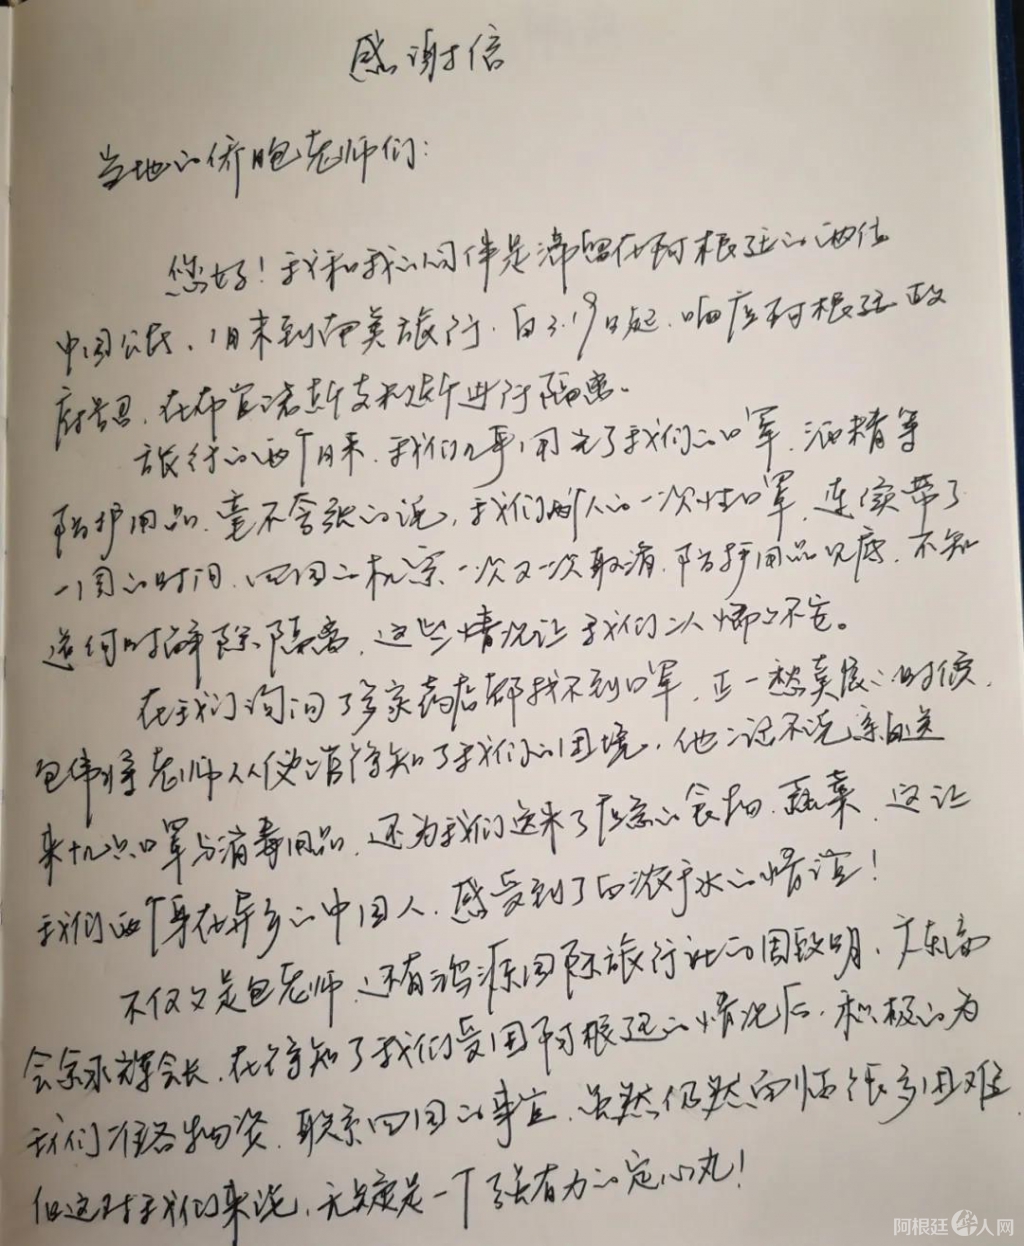 感谢信
当地的侨胞老师们：
您好！我和我的同伴是滞留在阿根廷的两位
中国公民，1月末到南美旅行，自3.19日起，响应阿根廷政
府号召，在布宜诺斯艾利斯进行隔离。
旅行的两个月来，我们几乎用光了我们的口罩，酒精等
防护用品，毫不夸张的说，我们两个人的一次性口罩，连续带了
一周的时间，回国的机票一次又一次取消，防护用品见底，不知
道何时解除隔离，这些情况让我们二人惴惴不安。
在我们询问了多家药店都找不到口罩，正一愁莫展的时候，
包伟将老师从使馆得知了我们的困境，他二话不说亲自送
来十几只口罩与消毒用品，还为我们送来了应急的食物、蔬菜，这让
我们两个身在异乡的中国人，感受到了血浓于水的情谊！
不仅仅是包老师，还有鸿源国际旅行社的周致明，广东商
会余永辉会长，在得知了我们受困阿根廷的情况后，积极的为
我们准备物资，联系回国的事宜，虽然仍然面临很多困难
但这对于我们来说，无疑是一个强有力的定心丸！
阿根廷华人网